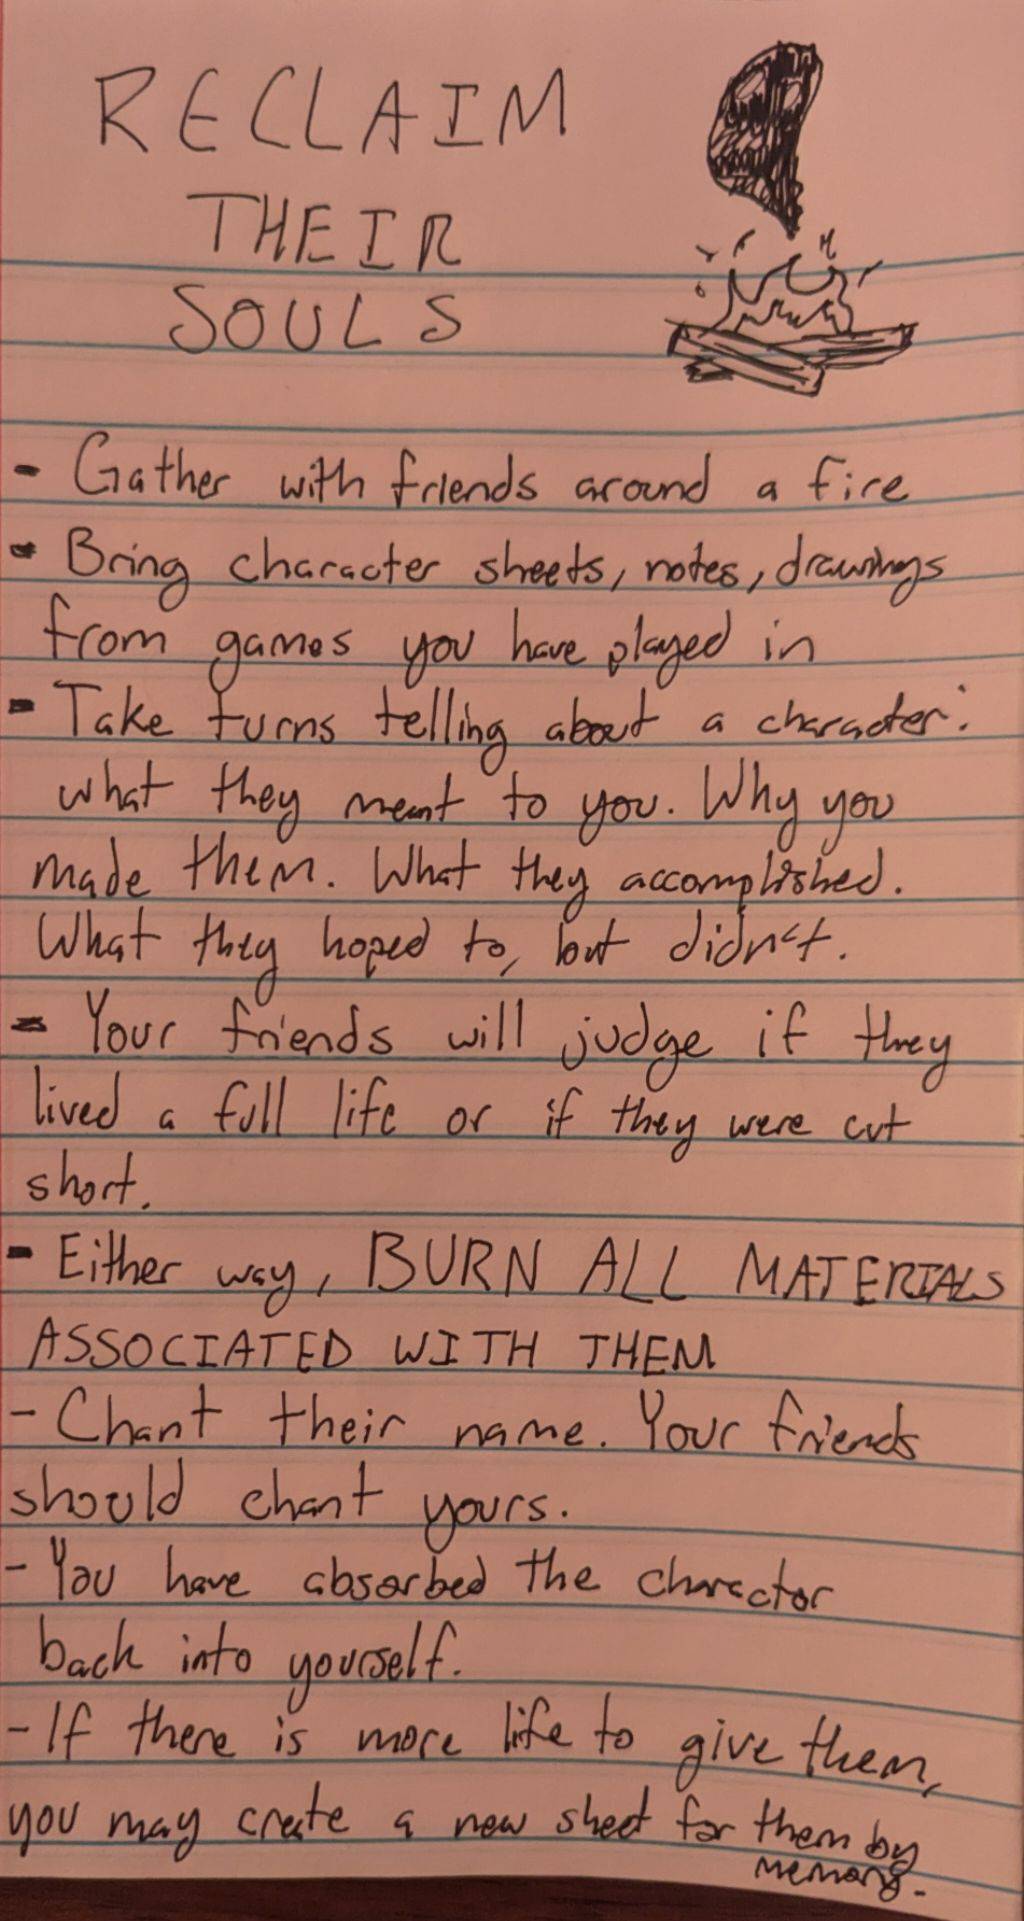 RECLAIM
THEIR
SOULS
- Gather with friends around a fire
- Bring character sheets, notes, drawings
from games you have played in
- Take turns telling about a character:
what they meant to you. Why you
made them. What they accomplished.
What they hoped to, but didn't.
- Your friends will judge if they
lived a full life or if they were cut
short.
- Either way, BURN ALL MATERIALS
ASSOCIATED WITH THEM
- Chant their name. Your friends
should chant yours.
- You have absorbed the charactor
back into yourself.
- If there is more life to give them,
you may create a new sheet for them by
memory.